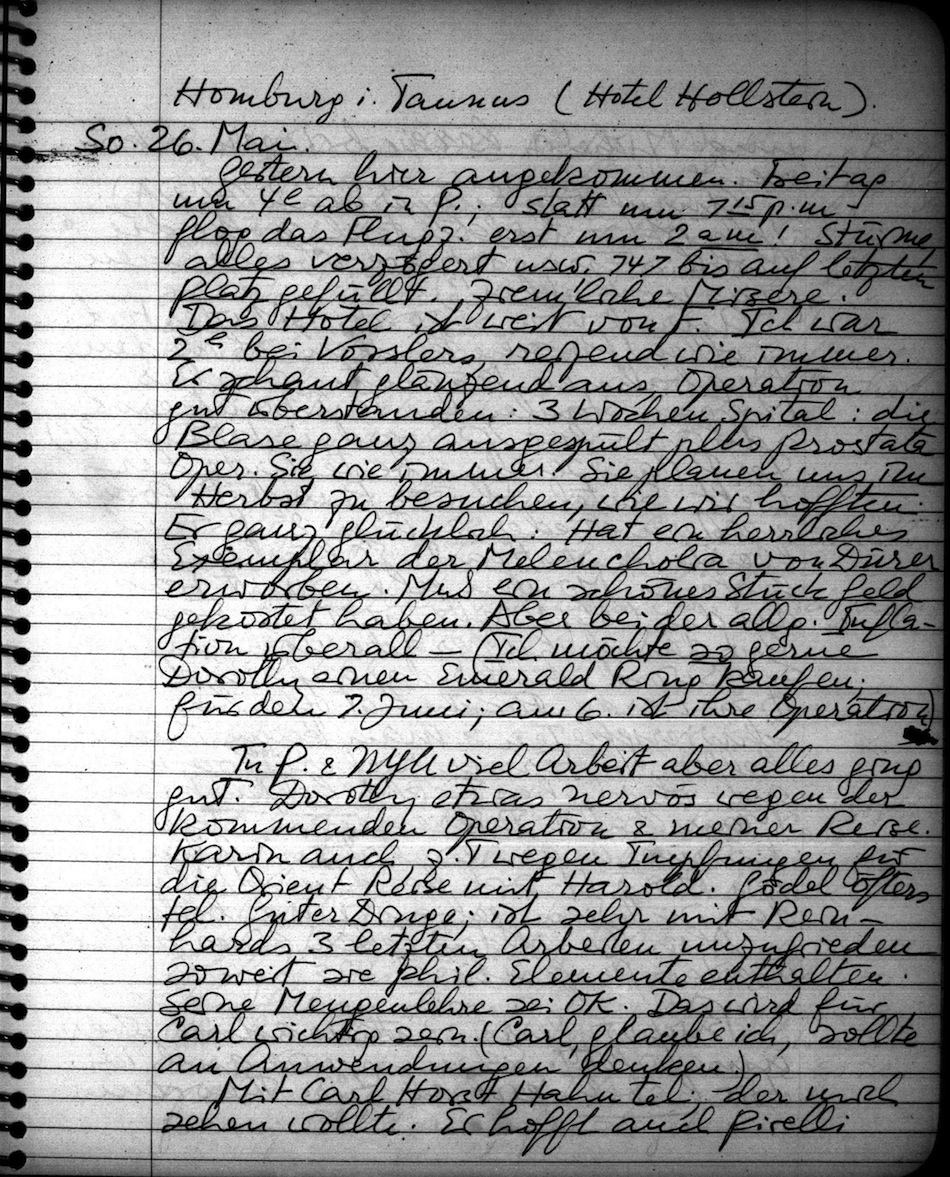 Homburg i. Taunus (Hotel Hollstein).
So. 26. Mai.
Gestern hier angekommen. Freitag
um 4e ab in P.; statt um 7 15 p.m
flog das Flugz. erst um 2 am! Stürme
alles verzögert usw. 747 bis auf letzten
Platz gefüllt. Ziemliche Misere.
Das Hotel ist weit von F. Ich war
2e bei Vosslers, reizend wie immer.
Er schaut glänzend aus, Operation
gut überstanden: 3 Wochen Spital: die
Blase ganz ausgespült plus Prostata
Oper. Sie wie immer. Sie planen uns im
Herbst zu besuchen, wie wir hofften.
Er ganz glücklich: Hat ein herrliches
Exemplar der Melencholia von Dürer
erworben. Mus ein schönes Stück Geld
gekostet haben. Aber bei der allg. Infla-
tion überall – (Ich möchte so gerne
Dorothy einen Emerald Ring kaufen,
für den 7. Juni; am 6. ist ihre Operation)
In P. & NYU viel Arbeit aber alles ging
gut. Dorothy etwas nervös wegen der
kommenden Operation & meiner Reise.
Karin auch z.T wegen Impfungen für
die Orient Reise mit Harold. Gödel öfters
tel. Guter Dinge; ist sehr mit Rein-
hards 3 letzten Arbeiten unzufrieden
soweit sie phil. Elemente enthalten.
Seine Mengenlehre sei OK. Das wird für
Carl wichtig sein. (Carl, glaube ich, sollte
an Anwendungen denken)
Mit Carl Horst Hahn tel. der mich
sehen wollte. Er hofft auch Pirelli